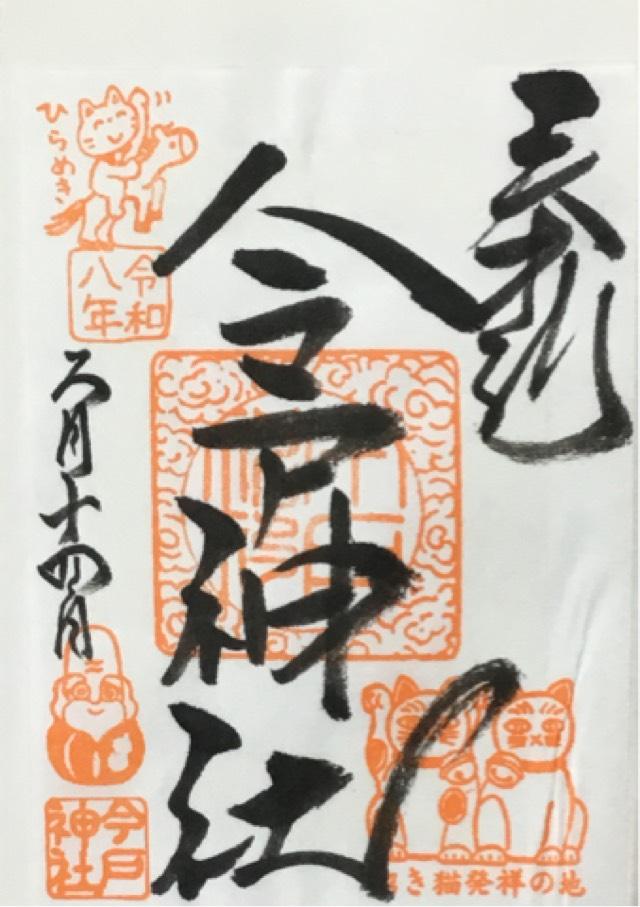 奉拝
今戸神社
ひらめき
令和
八年
六月十四日
今戸
神社
招き猫発祥の地